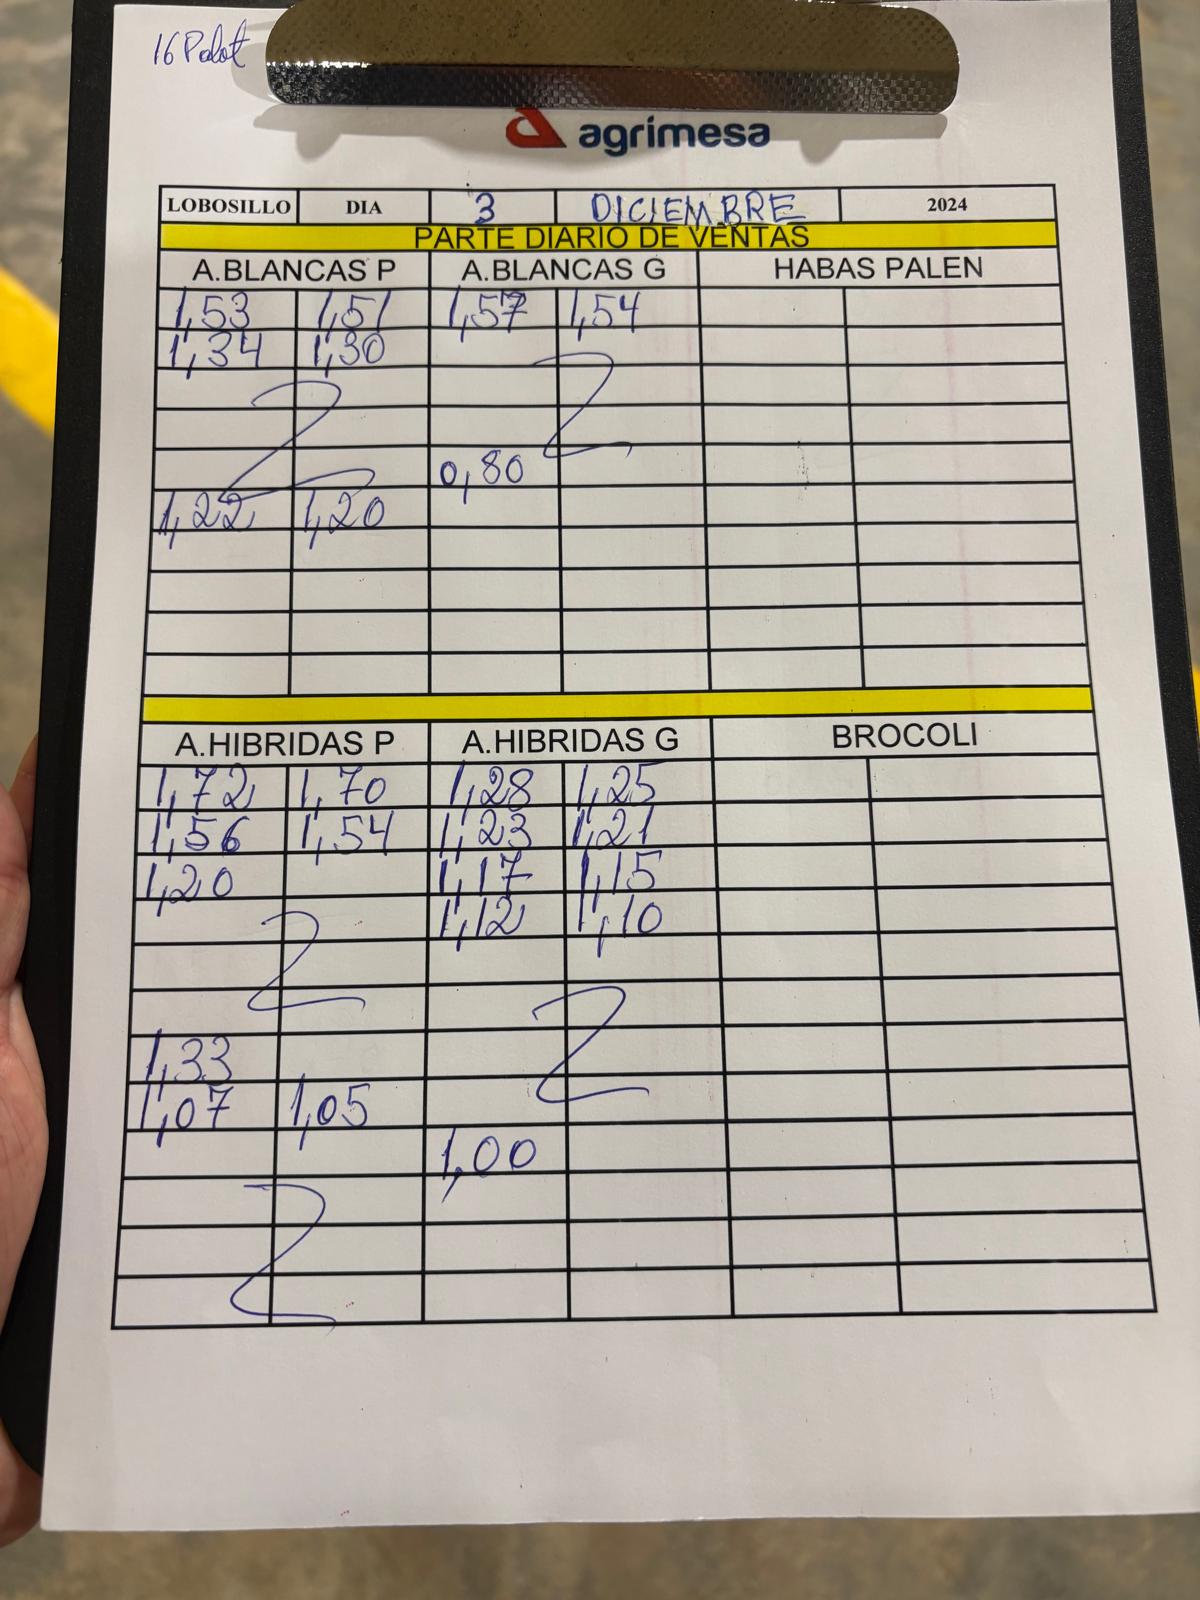 16 Palot
agrimesa
LOBOSILLO DIA 3 DICIEMBRE 2024
PARTE DIARIO DE VENTAS
A.BLANCAS P A.BLANCAS G HABAS PALEN
1,53 1,51 1,57 1,54
1,34 1,30
0,80
1,22 1,20
A.HIBRIDAS P A.HIBRIDAS G BROCOLI
1,72 1,70 1,28 1,25
1,56 1,54 1,23 1,21
1,20 1,17 1,15
1,12 1,10
1,33
1,07 1,05
1,00